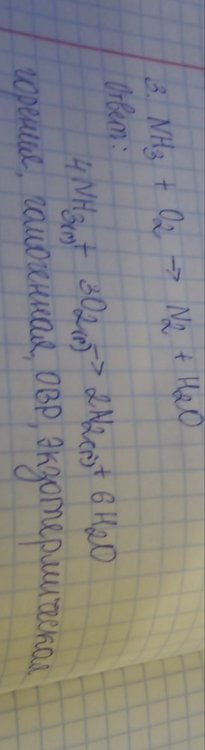 3. NH₃ + O₂ → N₂ + H₂O
Ответ:
4NH₃(г) + 3O₂(г) → 2N₂(г) + 6H₂O
горения, гомогенная, ОВР, экзотермическая